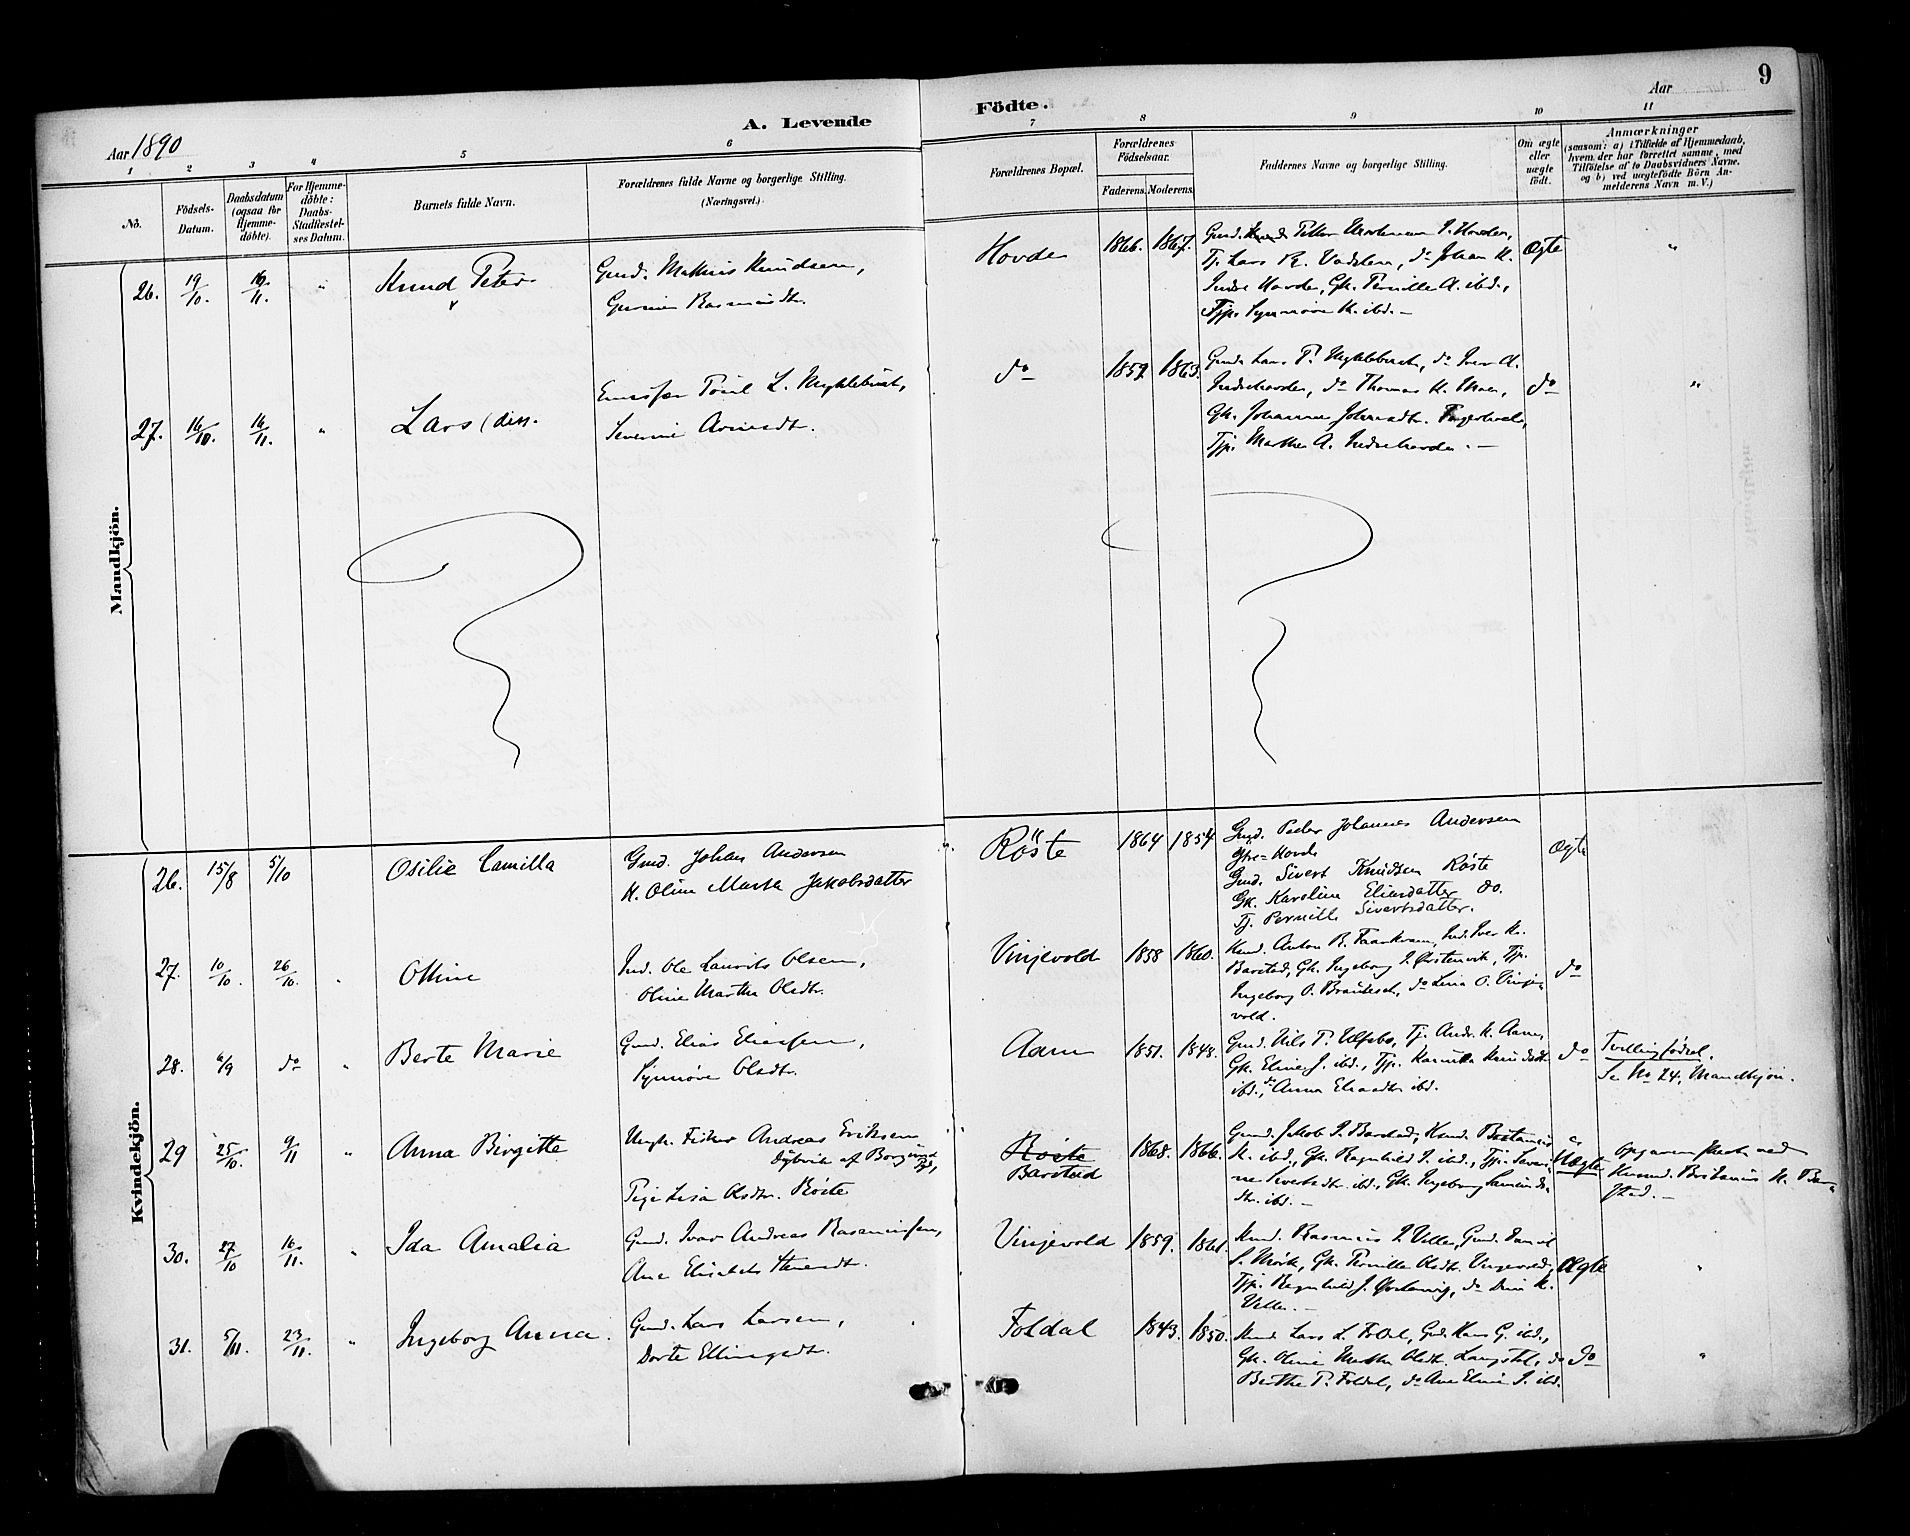 9
Aar 1890
A. Levende Födte.
Aar
1 2 3 4 5 6 7 8 9 10 11
No.
Födsels-Datum.
Daabsdatum (ogsaa for Hjemme-döbte).
For Hjemme-döbte: Daabs-Stadfæstel-ses Datum.
Barnets fulde Navn.
Forældrenes fulde Navne og borgerlige Stilling. (Næringsvei.)
Forældrenes Bopæl.
Forældrenes Födselsaar.
Faderens. Moderens.
Faddernes Navne og borgerlige Stilling.
Om ægte eller uægte födt.
Anmærkninger
(saasom: a) i Tilfælde af Hjemmedaab,
hvem der har forrettet samme, med
Tilföielse af to Daabsvidners Navne.
og b) ved uægtefödte Börn An-
melderens Navn m. V.)
Mandkjön.
26. 19/10. 16/11. " Knud Peter
Gmd. Mathias Knudsen,
Rasmusdt.
Hovde 1866. 1867.
Gmd. Petter
Tj. Lars R. do Johan K.
Indre Hovde, Gk. Pernille A. ibd.,
Tjp. Synnöve K. ibd. —
Ægte "
27. 16/10. 16/11. " Lars
L. Myklebust,
Severine
do 1859. 1863.
Gmd. Lars P. Myklebust, do Iver A.
Indrehovde, do Thomas K. Moen,
Gk. Johanne
Tjp. Marthe A. Indrehovde. —
do "
Kvindekjön.
26. 15/8 5/10 Osilie Camilla
Gmd. Johan Andersen
H. Oline Marta Jakobsdatter
Röste 1864 1854
Gmd. Peder Johannes Andersen
Ytre-Hovde
Gmd. Sivert Knudsen Röste
Gk. Karoline Eliasdatter do.
Tj. Pernille Sivertsdatter.
Ægte
27. 10/10. 26/10. " Oline
Ind. Ole Laurits Olsen,
Oline Marthe Olsdt.
Vinjevold 1858 1860.
Kmd. Anton R. Ind. Iver K.
Barstad, Gk. Ingeborg I. Tjp.
Ingeborg O. do Lina O. Vinje-
vold.
do
28. 6/9 do " Berte Marie
Gmd. Elias Eliassen,
Synnöve Olsdt.
Aam 1851. 1848.
Gmd. Nils P. Ulfsbö, Tj. Andr. K. Aam,
Gk. Eline J. ibd., Tjp.
ibd., do Anna ibd.
do
Tvillingfödsel.
Se No 24, Mandkjön.
29 25/10. 9/11 Anna Birgitte
Ungk. Fisker Andreas Eriksen
Dybvik af Borgund
Pige Lisa Olsdt. Röste
Röste
Barstad 1868. 1866.
Gmd. Jakob P. Barstad, Kmd.
K. ibd., Gk. Ragnhild I. ibd., Tjp. Severi-
ne Sivertsdtr. ibd., Gk. Ingeborg
dtr. ibd. —
Uægte
Opgaven skeet ved
Kmd. K. Bar-
stad. —
30. 27/10 16/11. " Ida Amalia
Gmd. Ivar Andreas Rasmussen,
Ane Elisabet
Vinjevold 1859. 1861.
Kmd. Rasmus I. Velle, Gmd. Daniel
S. Mork, Gk. Pernille Olsdt. Vingevold,
Tjp. Ragnhild J. do K.
Velle. —
Ægte "
31. 5/11. 23/11. " Ingeborg Anna.
Gmd. Lars Larsen,
Dorte Ellingsdt.
Foldal 1843. 1850.
Kmd. Lars L. Foldal, Gmd. Hans G. ibd.,
Gk. Oline Marthe Olsdt. do
Berthe P. Foldal, do Ane Eline I. ibd.
do "